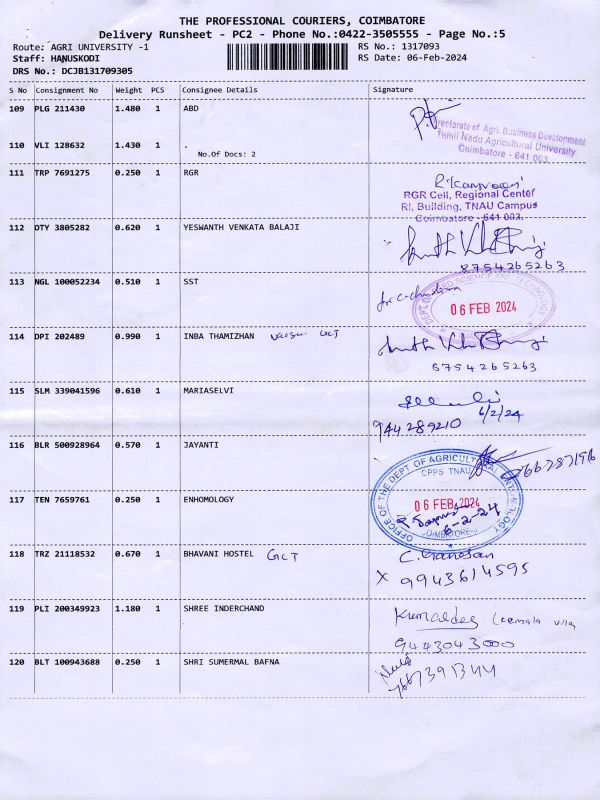 THE PROFESSIONAL COURIERS, COIMBATORE
Delivery Runsheet - PC2 - Phone No.:0422-3505555 - Page No.:5
Route: AGRI UNIVERSITY -1
RS No.: 1317093
Staff: HANUSKODI
RS Date: 06-Feb-2024
DRS No.: DCJB131709305
S No Consignment No Weight PCS Consignee Details Signature
109 PLG 211430 1.480 1 ABD
Directorate of Agri. Business Development
Tamil Nadu Agricultural University
Coimbatore - 641 003.
110 VLI 128632 1.430 1 .
No.Of Docs: 2
111 TRP 7691275 0.250 1 RGR
RGR Cell, Regional Center
RI, Building, TNAU Campus
Coimbatore - 641 003.
112 DTY 3805282 0.620 1 YESWANTH VENKATA BALAJI
8754265263
113 NGL 100052234 0.510 1 SST
06 FEB 2024
114 DPI 202489 0.990 1 INBA THAMIZHAN GCT
8754265263
115 SLM 339041596 0.610 1 MARIASELVI
6/2/24
944289210
116 BLR 500928964 0.570 1 JAYANTI
OFFICE OF THE DEPT OF AGRICULTURAL ENTOMOLOGY
CPPS TNAU
117 TEN 7659761 0.250 1 ENHOMOLOGY
06 FEB 2024
6-2-24
COIMBATORE-3
118 TRZ 21118532 0.670 1 BHAVANI HOSTEL GCT
C. Ganesan
X 9943614595
119 PLI 200349923 1.180 1 SHREE INDERCHAND
9443043000
120 BLT 100943688 0.250 1 SHRI SUMERMAL BAFNA
7667391344